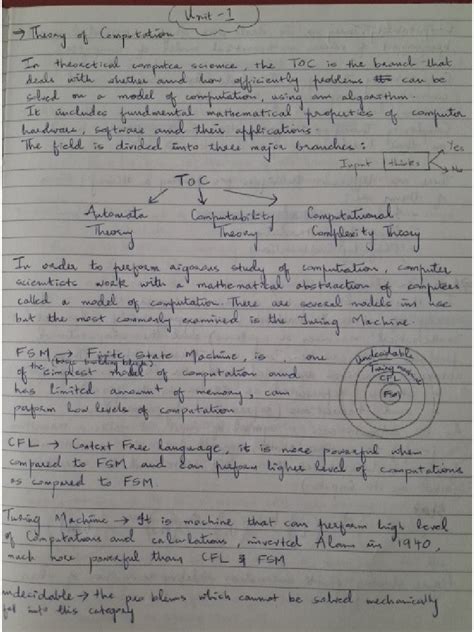 Unit - 1
→ Theory of Computation
In theoretical computer science, the TOC is the branch that
deals with whether and how efficiently problems can be
solved on a model of computation, using an algorithm.
It includes fundmental mathematical properties of computer
hardware, software and their applications.
The field is divided into three major branches:
Input thinks Yes No
TOC
Automata Theory
Computability Theory
Computational Complexity Theory
In order to perform rigorous study of computation, computer
scientists work with a mathematical abstraction of computers
called a model of computation. There are several models in use
but the most commonly examined is the Turing Machine.
FSM → Finite State Machine, is one
(basic building block)
of the simplest model of computation and
has limited amount of memory, can
perform low levels of computation
Undecidable
Turing machine
CFL
FSM
CFL → Context Free language, it is more powerful when
compared to FSM and can perform higher level of computations
as compared to FSM
Turing Machine → It is machine that can perform high level
of Computations and calculations, invented Alan in 1940,
much more powerful than CFL & FSM
undecidable → the problems which cannot be solved mechanically
fall into this category